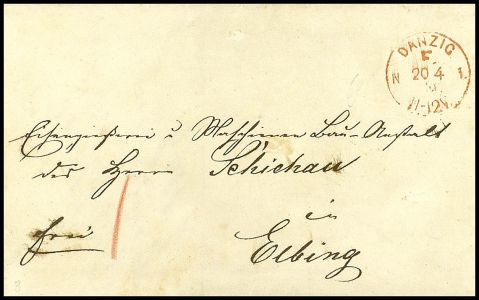 DANZIG
F
N 20 4 1.
11-12V
Eisengießerei u Maschinen Bau-Anstalt
des Herrn Schichau
in
frei
Elbing